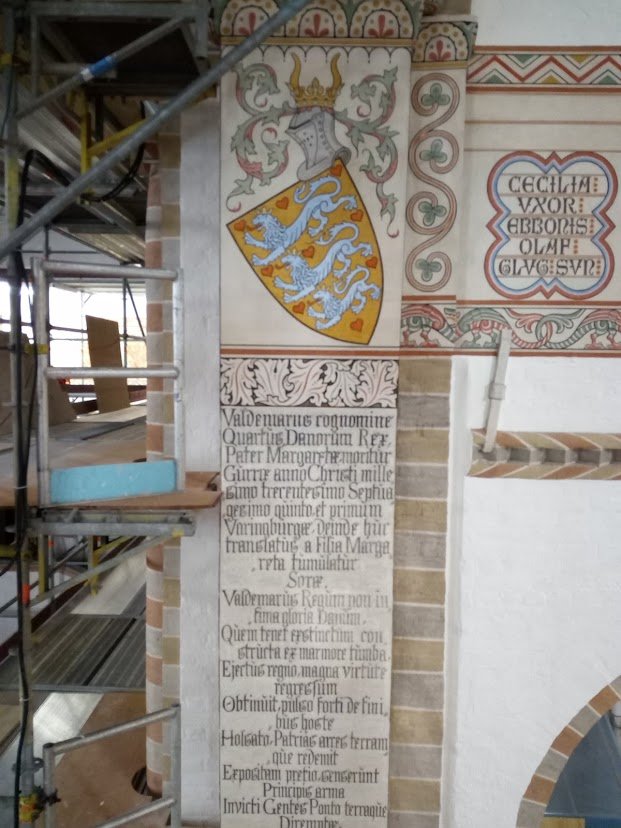 Valdemarus cognomine
Quartus Danorum Rex
Pater Margaretæ moritur
Gurræ anno Christi mille
simo trecentesimo Septua
gesimo quinto et primum
Voringburgæ, deinde huc
translatus a Filia Marga
reta tumulatur
Soræ.
Valdemarius Regum non in
fima gloria Danum,
Quem tenet exstinctum con
structa ex marmore tumba,
Ejectus regno, magna virtute
regressum
Obtinuit, pulso forti de fini
bus hoste
Holsato, Patriæ arces terram
que redemit
Expositam pretio, senserunt
Principis arma
Invicti Gentes Ponto terraque
Diremptæ
CECILIA
VXOR
EBBONIS
OLAF
GLVG SVN